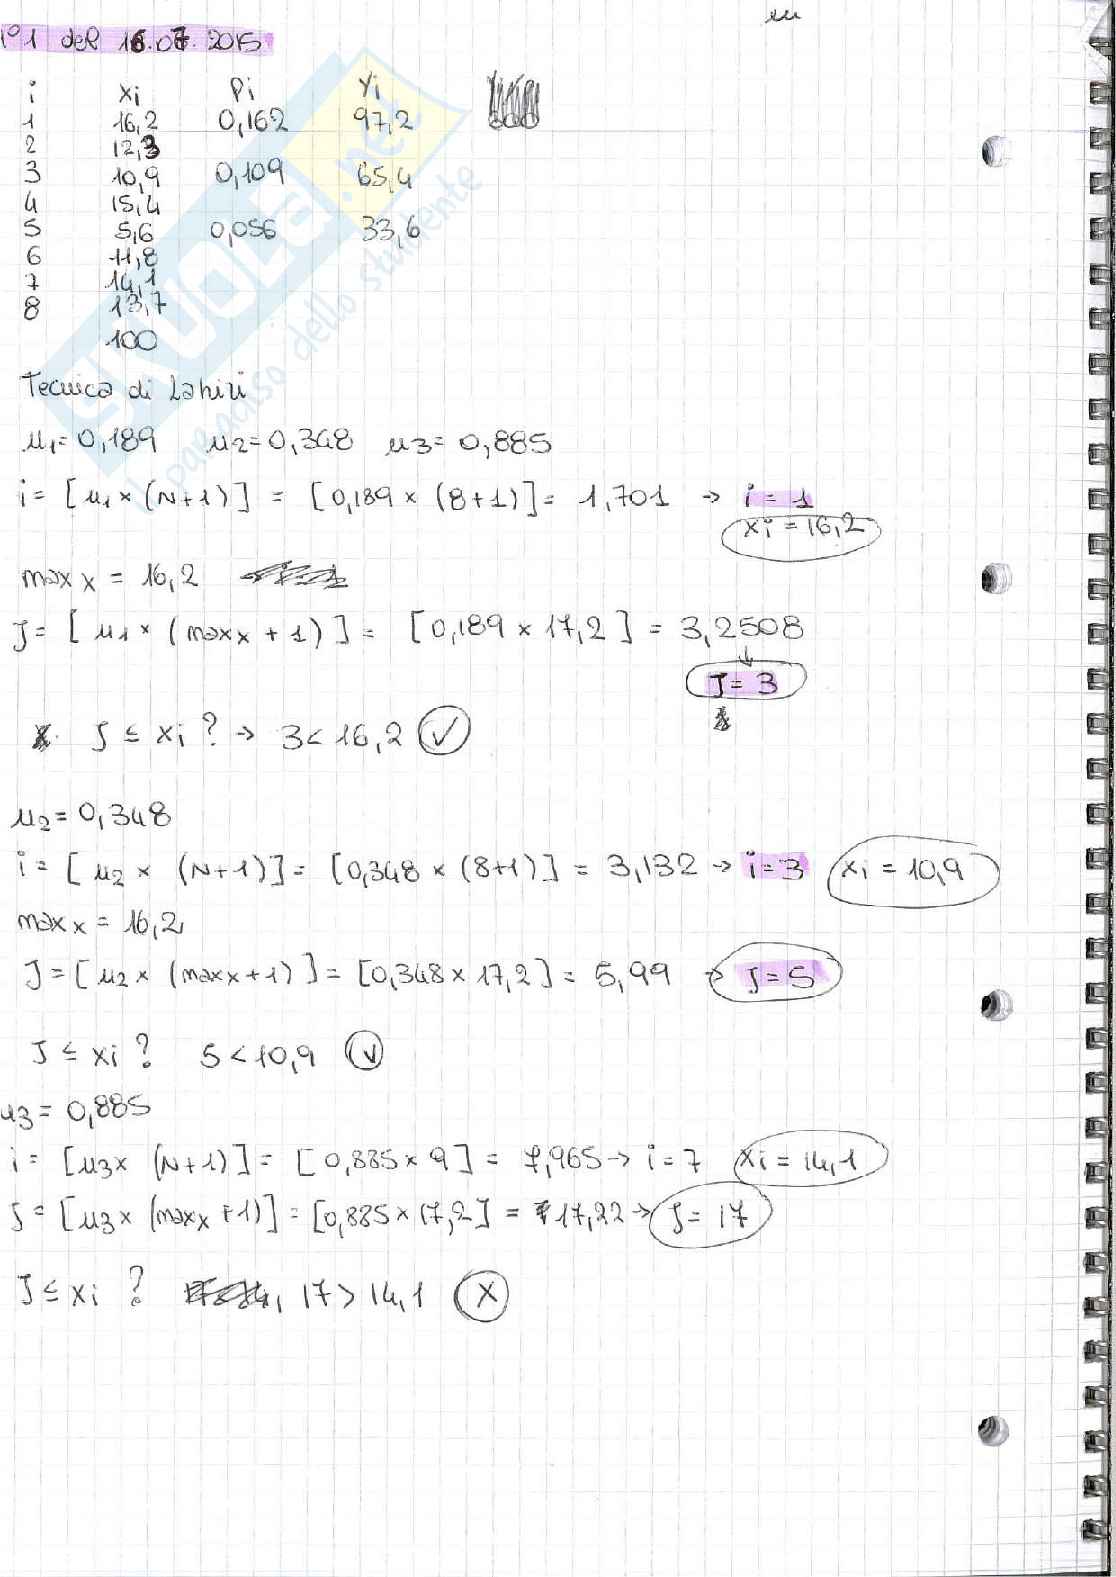 n°1 del 16.07.2015
i xi pi yi
1 16,2 0,162 97,2
2 12,3
3 10,9 0,109 65,4
4 15,4
5 5,6 0,056 33,6
6 11,8
7 14,1
8 13,7
100
Tecnica di Lahiri
u1 = 0,189 u2 = 0,348 u3 = 0,885
i = [u1 × (N+1)] = [0,189 × (8+1)] = 1,701 → i = 1
xi = 16,2
max x = 16,2
J = [u1 × (maxx + 1)] = [0,189 × 17,2] = 3,2508
↓
J = 3
J ≤ xi ? → 3 < 16,2 ✓
u2 = 0,348
i = [u2 × (N+1)] = [0,348 × (8+1)] = 3,132 → i = 3 xi = 10,9
max x = 16,2
J = [u2 × (maxx + 1)] = [0,348 × 17,2] = 5,99 → J = 5
J ≤ xi ? 5 < 10,9 ✓
u3 = 0,885
i = [u3 × (N+1)] = [0,885 × 9] = 7,965 → i = 7 xi = 14,1
J = [u3 × (maxx + 1)] = [0,885 × 17,2] = 17,22 → J = 17
J ≤ xi ? 17 > 14,1 X
SKUOLA.net
il paradiso dello studente